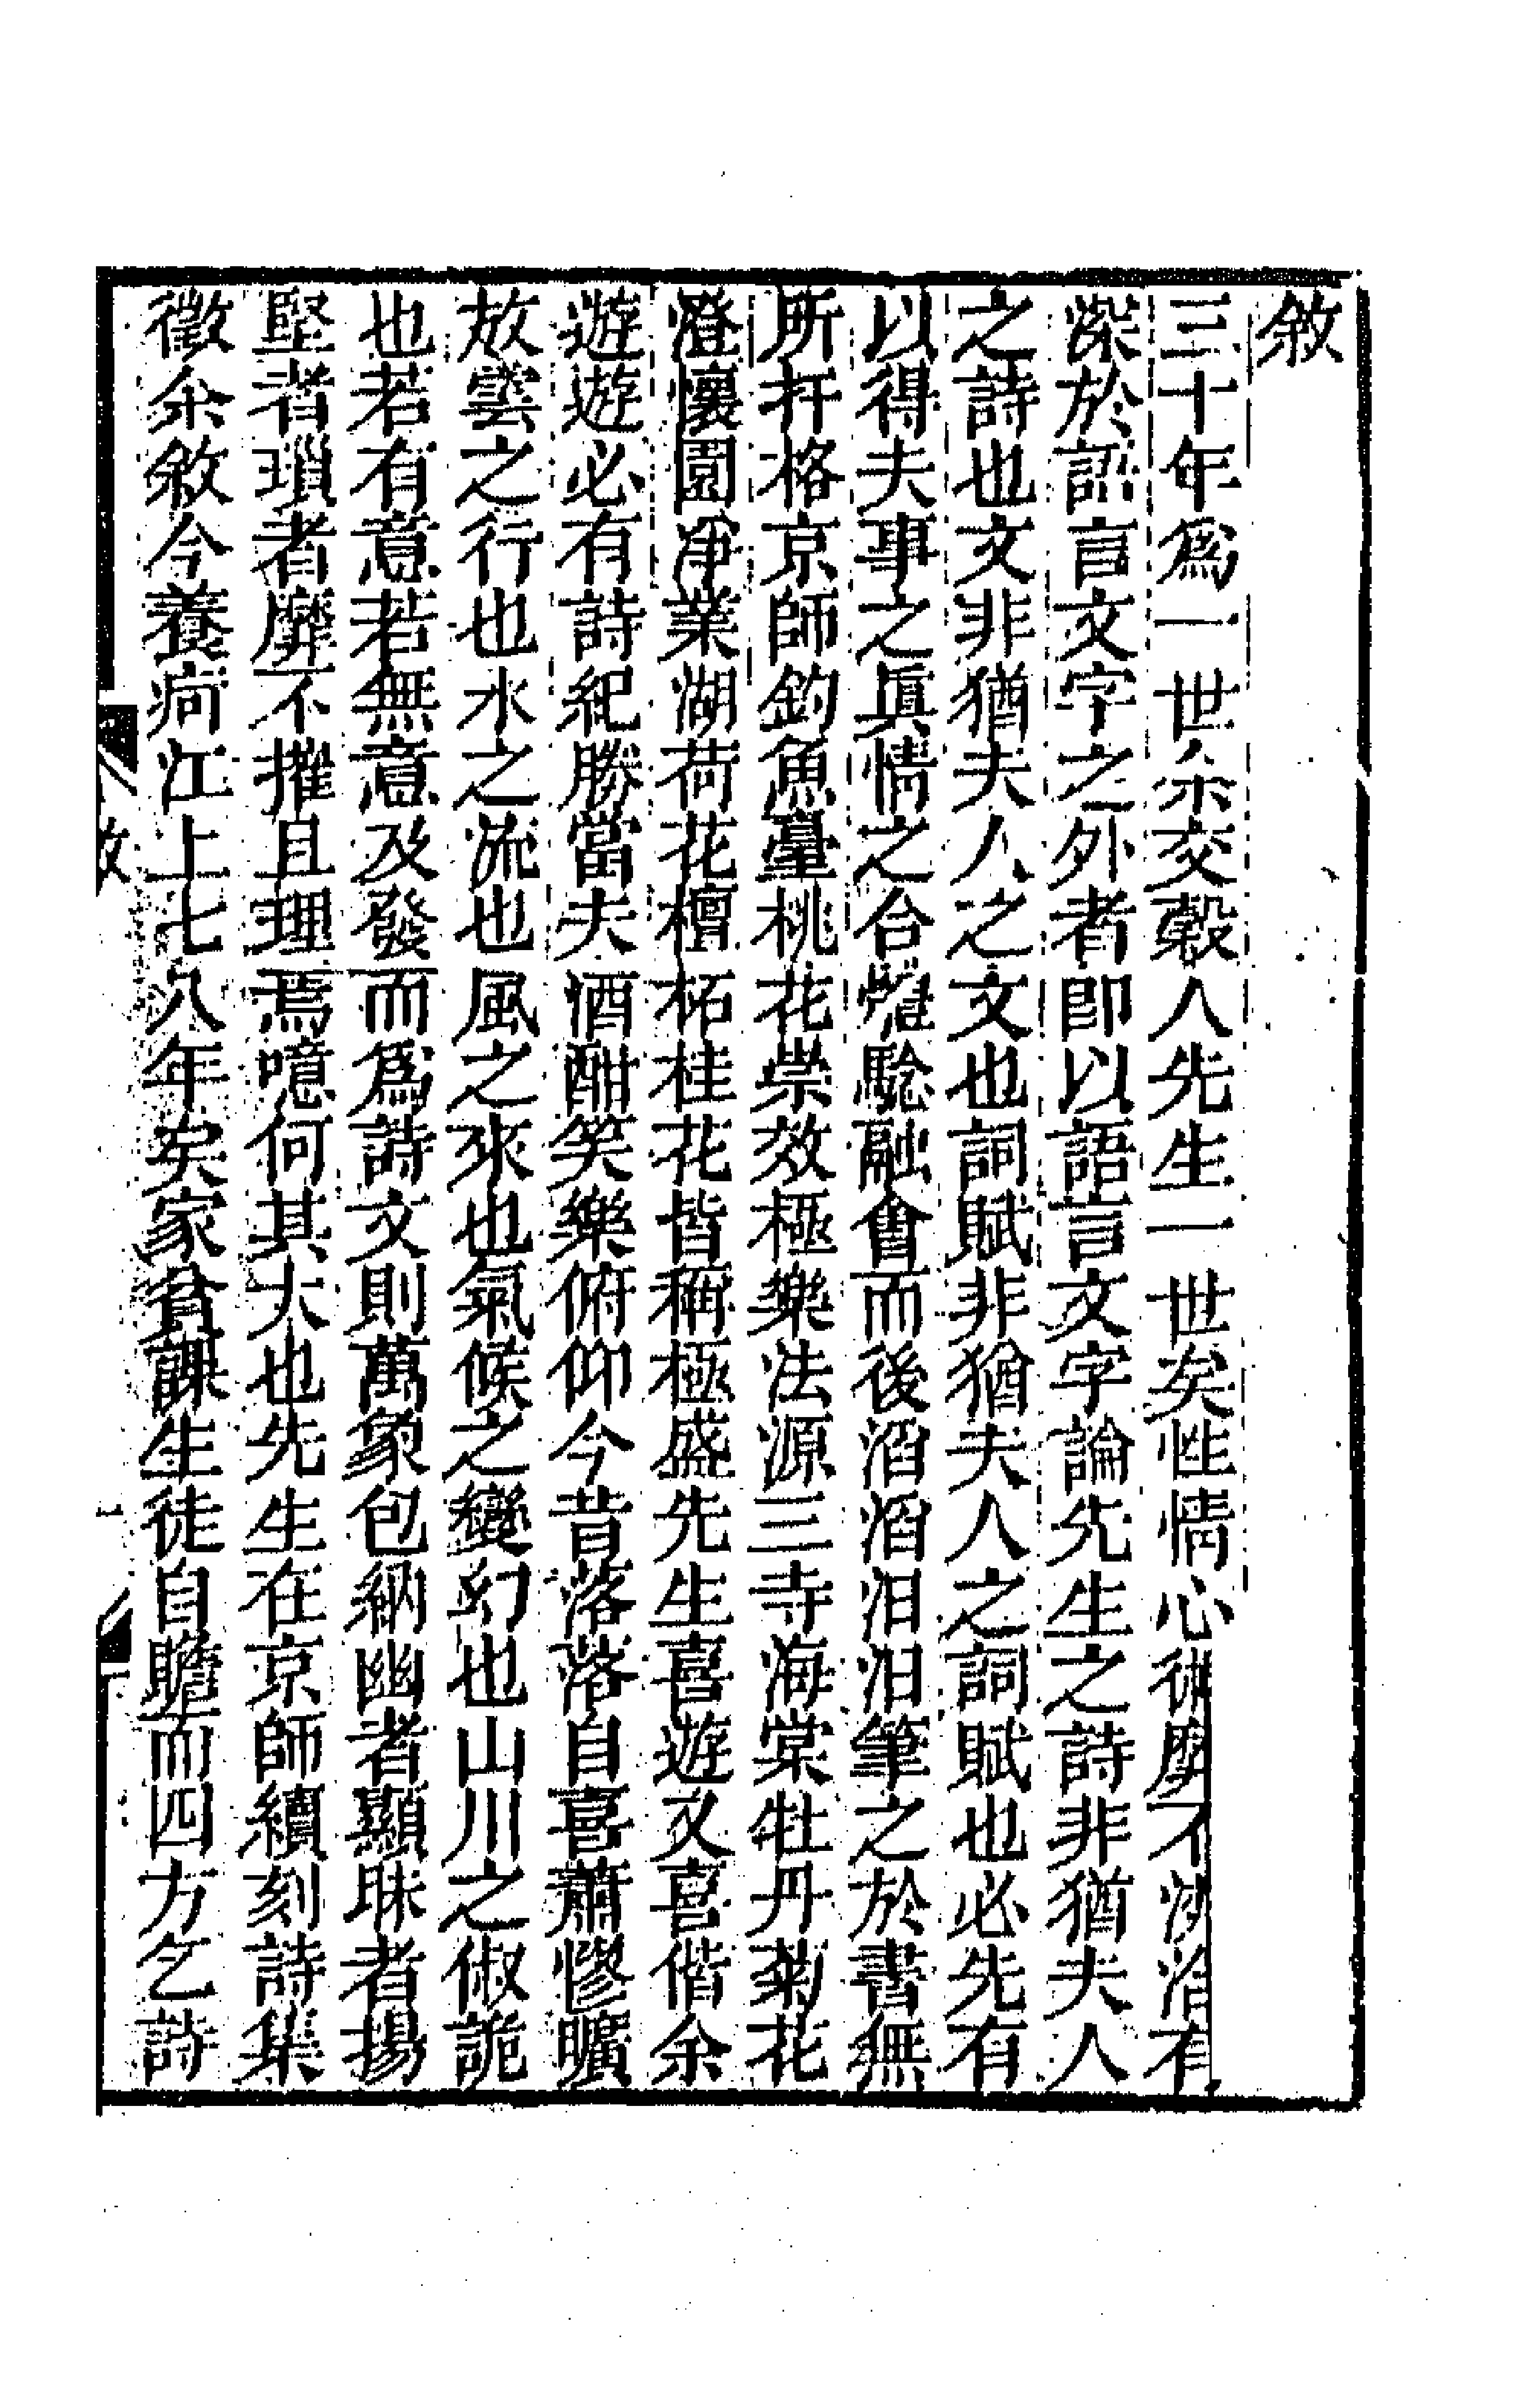 敘
三十年爲一世余交穀人先生一世矣性情心術靡不浹洽有
深於語言文字之外者卽以語言文字論先生之詩非猶夫人
之詩也文非猶夫人之文也詞賦非猶夫人之詞賦也必先有
以得夫事之眞情之合爟騐融會而後滔滔汨汨筆之於書無
所扞格京師釣魚臺桃花崇效極樂法源三寺海棠牡丹菊花
澄懷園淨業湖荷花檀柘桂花皆稱極盛先生喜遊又喜偕余
遊遊必有詩紀勝當夫酒酣笑樂俯仰今昔落落自喜蕭慘曠
放雲之行也水之流也風之來也氣候之變幻也山川之俶詭
也若有意若無意及發而爲詩文則萬象包納幽者顯昧者揚
堅者瑣者靡不摧且理焉噫何其大也先生在京師續刻詩集
徵余敘今養疴江上七八年矣家貧課生徒自贍而四方乞詩